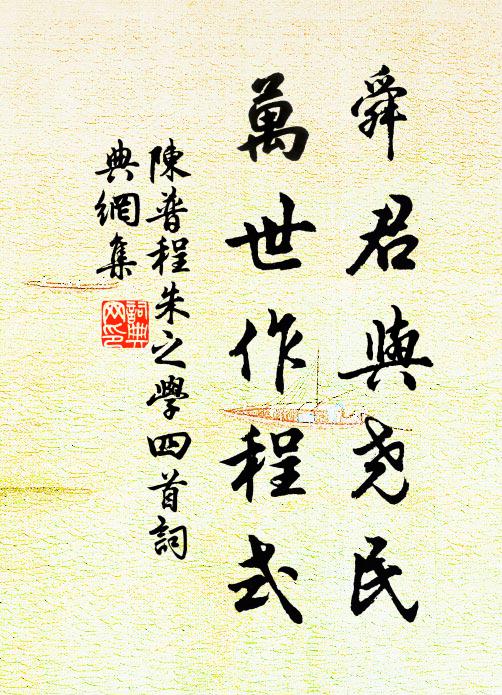 舜君與尧民
萬世作程式
陳普程朱之學四首詞
典網集
詞典
网印